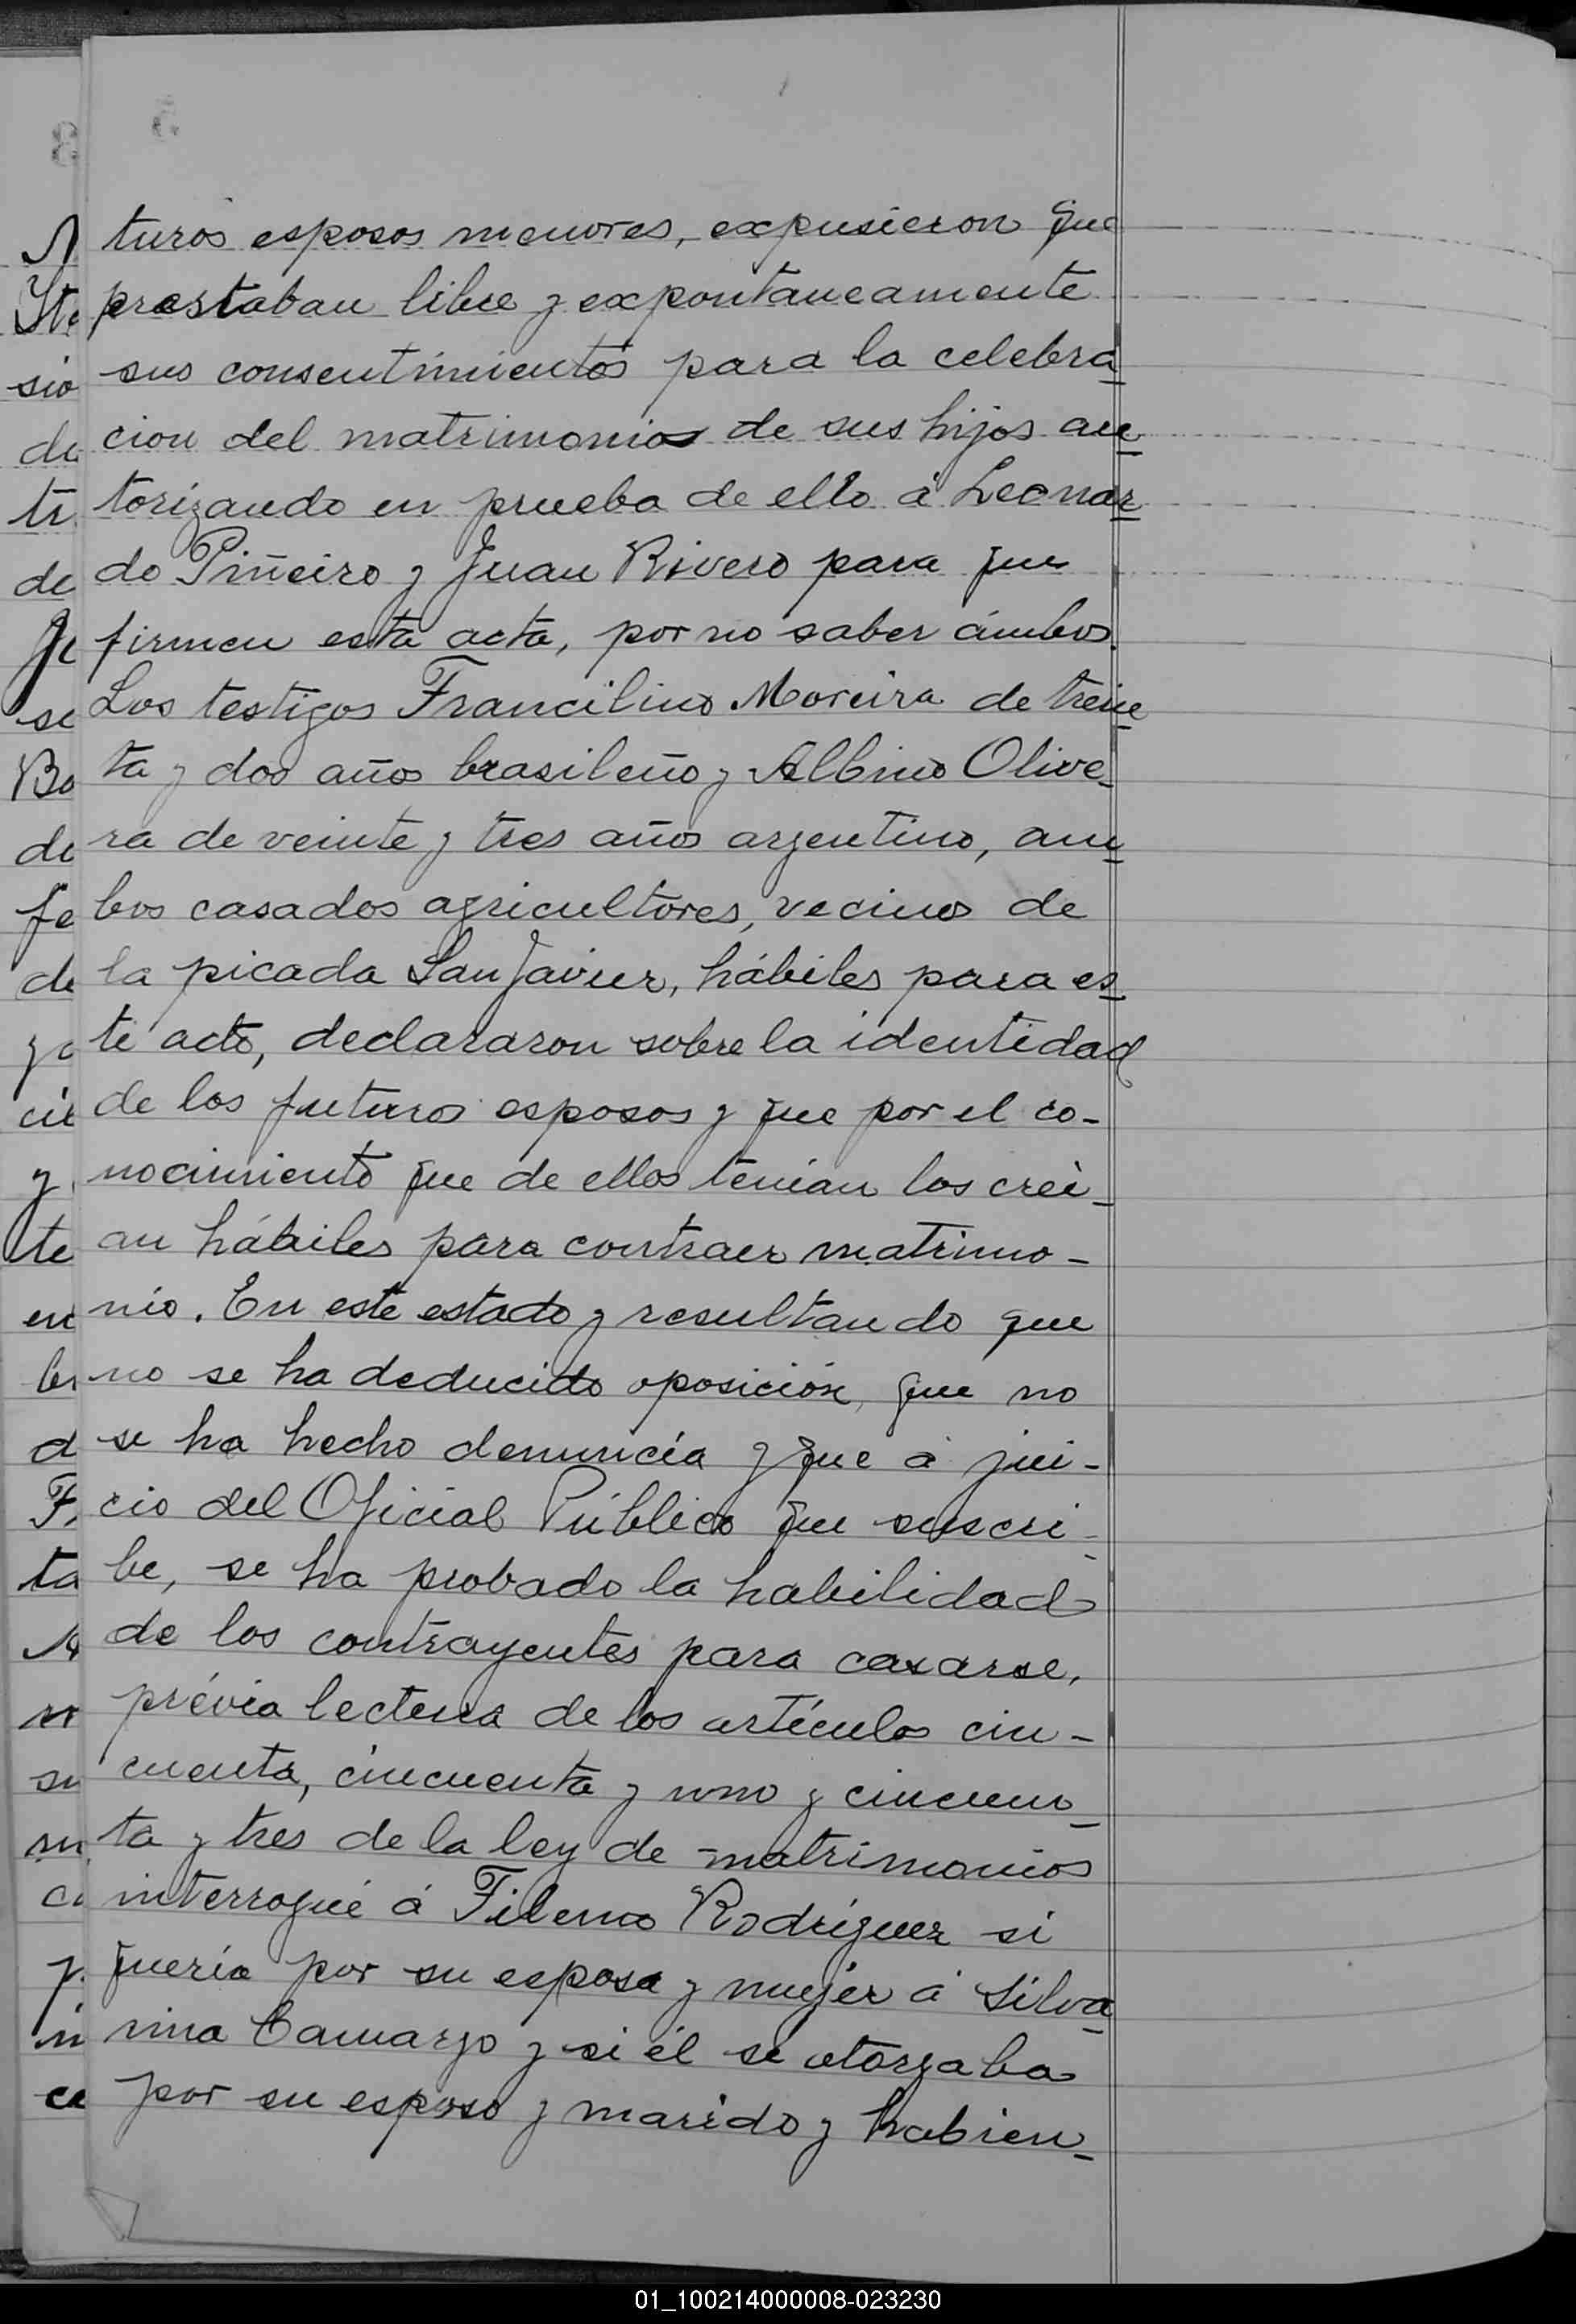 turos esposos menores, expusieron que
prestaban libre y expontaneamente
sus consentimientos para la celebra
cion del matrimonio de sus hijos au
torizando en prueba de ello á Leonar
do Piñeiro y Juan Rivero para que
firmen esta acta, por no saber ámbos.
Los testigos Francilino Moreira de trein
ta y dos años brasileño y Albino Olive
ra de veinte y tres años argentino, am
bos casados agricultores, vecinos de
la picada San Javier, hábiles para es
te acto, declararon sobre la identidad
de los futuros esposos y que por el co-
nocimiento que de ellos tenian los crei-
an hábiles para contraer matrimo-
nio. En este estado y resultando que
no se ha deducido oposición, que no
se ha hecho denuncia y que á jui-
cio del Oficial Público que suscri-
be, se ha probado la habilidad
de los contrayentes para casarse,
prévia lectura de los artículos cin-
cuenta, cincuenta y uno y cincuen
ta y tres de la ley de matrimonios
interrogué á Fileno Rodríguez si
quería por su esposa y mujer á Silva
nina Camargo y si él se otorgaba
por su esposo y marido y habien-
01_100214000008-023230